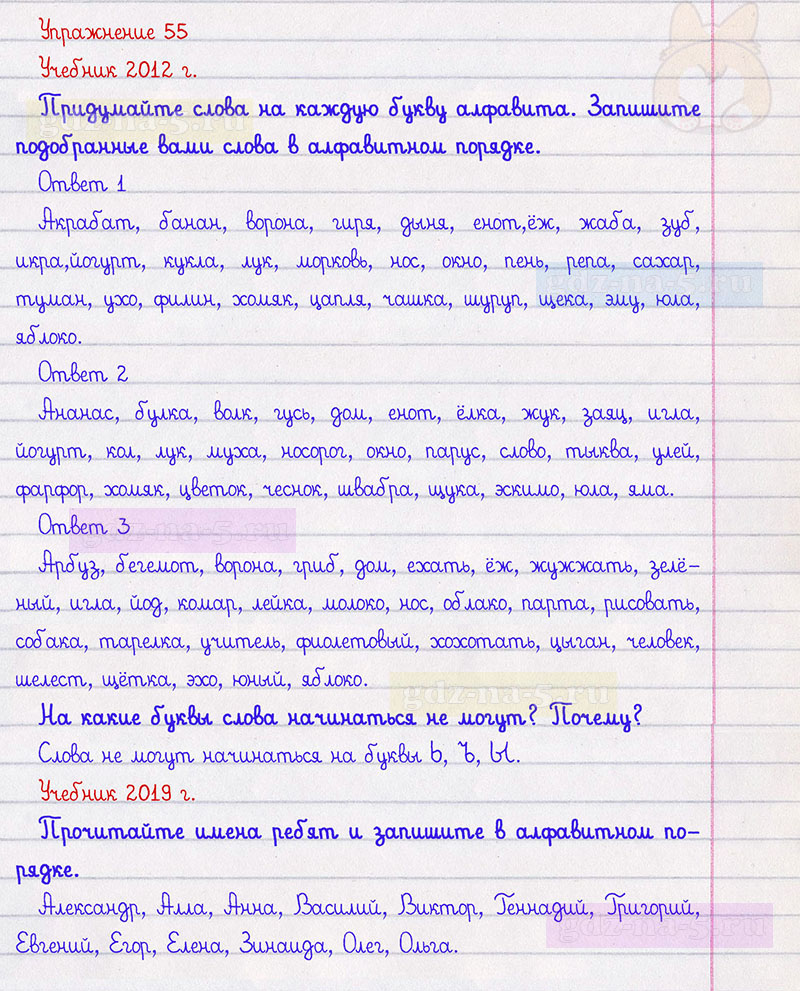 Упражнение 55
Учебник 2012 г.
Придумайте слова на каждую букву алфавита. Запишите
подобранные вами слова в алфавитном порядке.
gdz-na-5.ru
Ответ 1
Акрабат, банан, ворона, гиря, дыня, енот,ёж, жаба, зуб,
икра,йогурт, кукла, лук, морковь, нос, окно, пень, репа, сахар,
gdz-na-5.ru
туман, ухо, филин, хомяк, цапля, чашка, шуруп, щека, эму, юла,
яблоко.
Ответ 2
Ананас, булка, волк, гусь, дом, енот, ёлка, жук, заяц, игла,
йогурт, кол, лук, муха, носорог, окно, парус, слово, тыква, улей,
фарфор, хомяк, цветок, чеснок, швабра, щука, эскимо, юла, яма.
Ответ 3
gdz-na-5.ru
Арбуз, бегемот, ворона, гриб, дом, ехать, ёж, жужжать, зелё-
ный, игла, йод, комар, лейка, молоко, нос, облако, парта, рисовать,
собака, тарелка, учитель, фиолетовый, хохотать, цыган, человек,
шелест, щётка, эхо, юный, яблоко.
gdz-na-5.ru
На какие буквы слова начинаться не могут? Почему?
Слова не могут начинаться на буквы Ь, Ъ, Ы.
Учебник 2019 г.
Прочитайте имена ребят и запишите в алфавитном по-
рядке.
Александр, Алла, Анна, Василий, Виктор, Геннадий, Григорий,
gdz-na-5.ru
Евгений, Егор, Елена, Зинаида, Олег, Ольга.